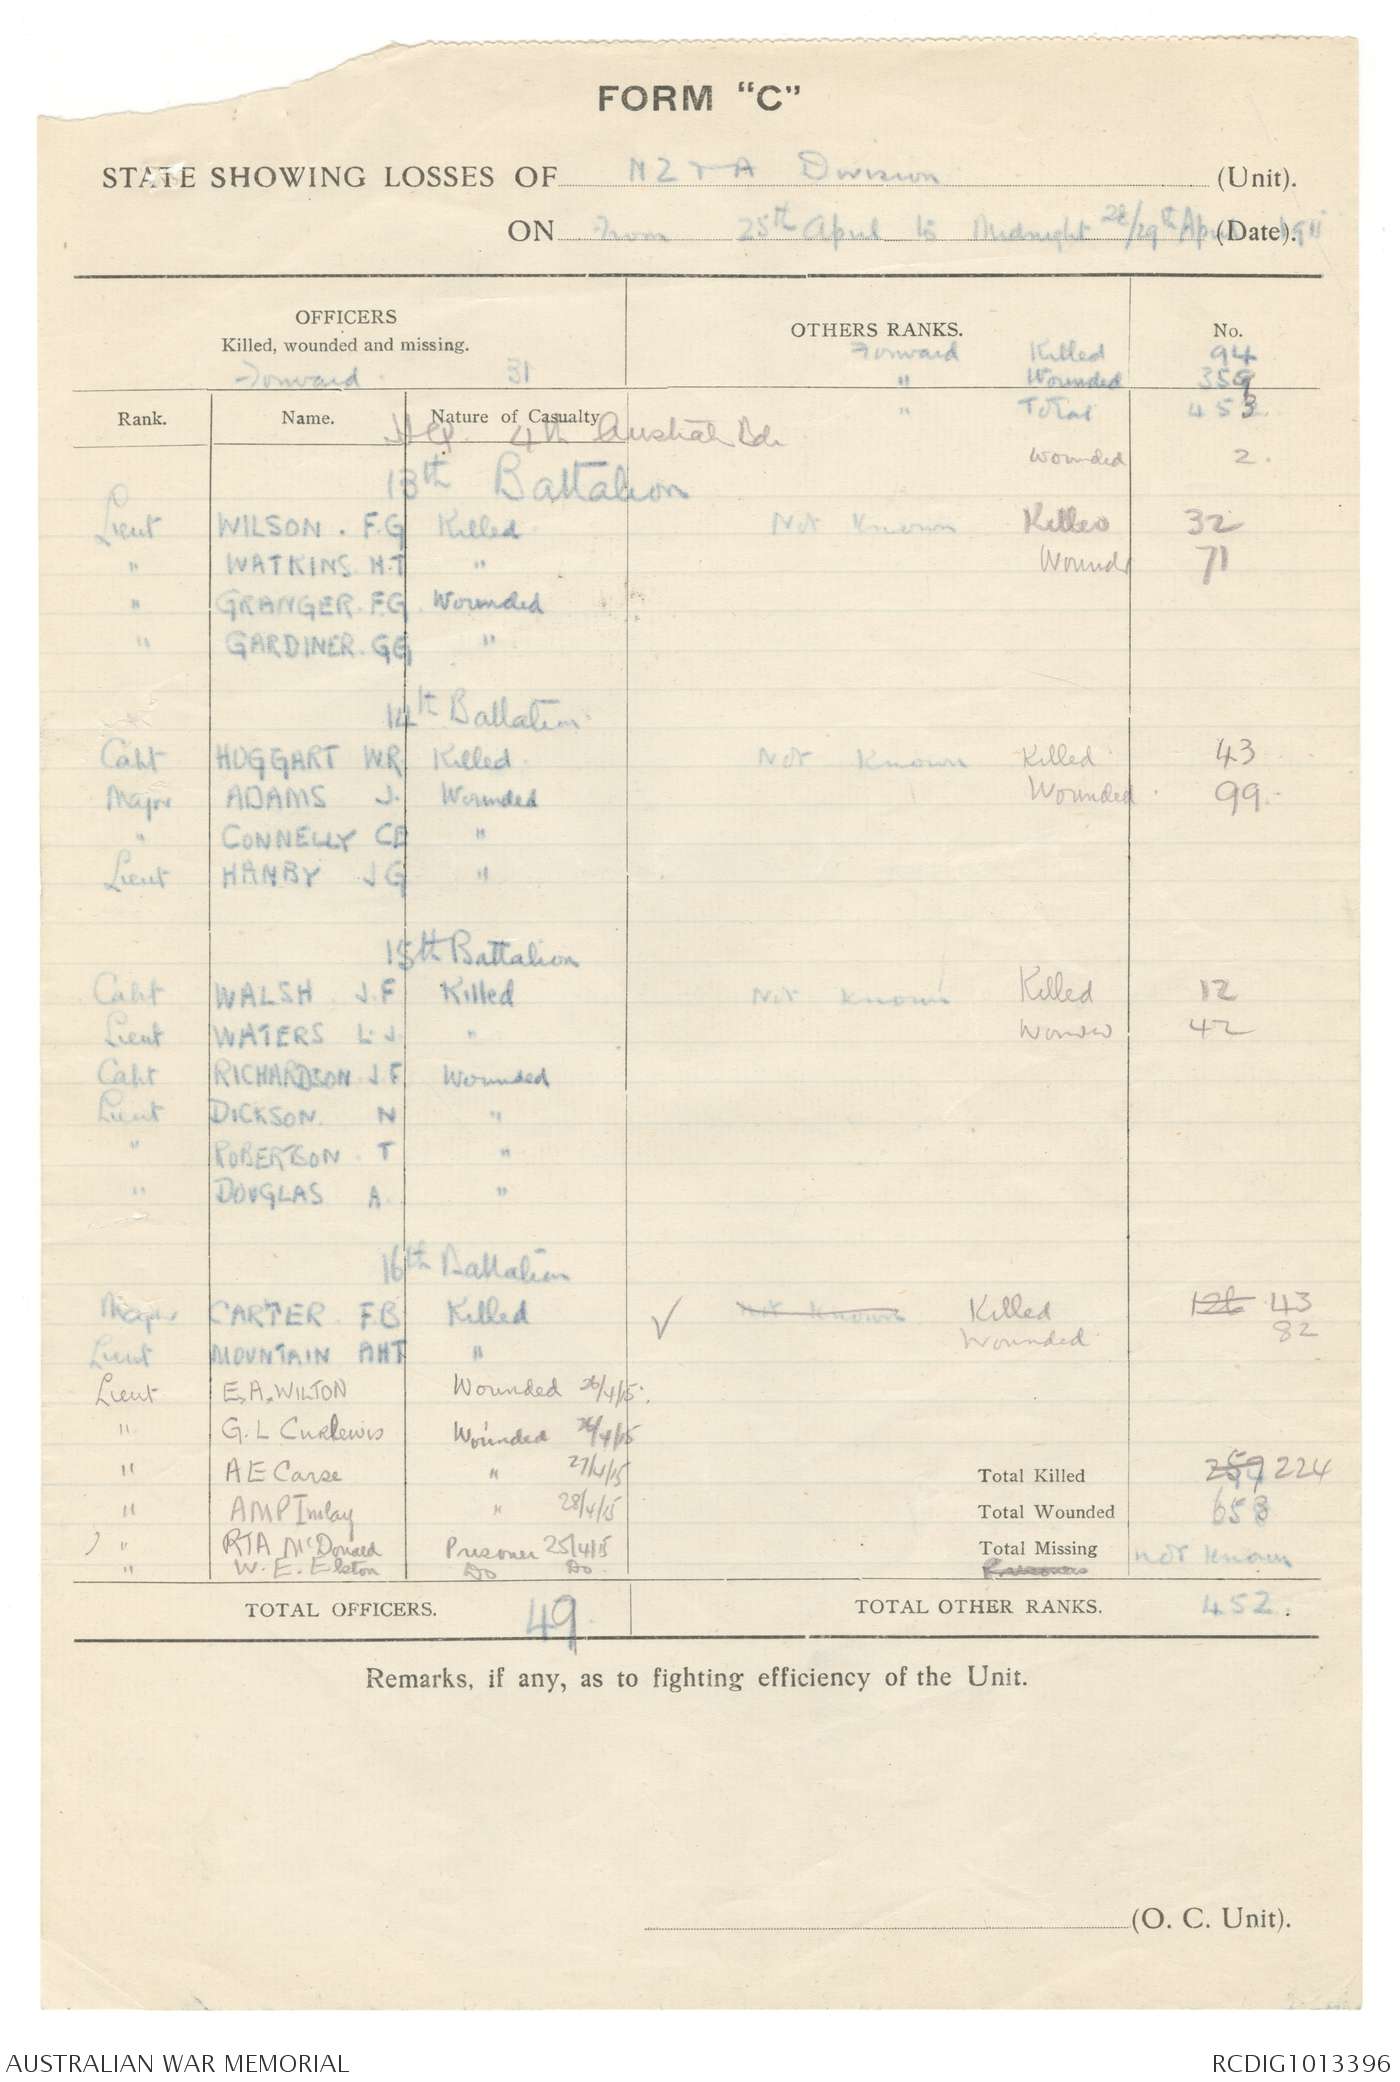 FORM "C"
STATE SHOWING LOSSES OF NZ & A Division (Unit).
ON From 25th April to Midnight 28/29th April (Date).
OFFICERS
Killed, wounded and missing.
OTHERS RANKS.
No.
Forward 31
Forward Killed 94
" Wounded 359
Rank. Name. Nature of Casualty
" Total 453
4th Austral Bde
Wounded 2.
13th Battalion
Lieut WILSON. F.G Killed Not Known Killed 32
" WATKINS. H.T " Wounds 71
" GRANGER. F.G. Wounded
" GARDINER. GG "
14th Battalion
Capt HOGGART W.R Killed Not Known Killed 43
Major ADAMS J. Wounded Wounded 99.
" CONNELLY CE "
Lieut HANBY J G "
15th Battalion
Capt WALSH J.F Killed Not Known Killed 12
Lieut WATERS L.J. " Wounded 42
Capt RICHARDSON J.F. Wounded
Lieut DICKSON. N "
" ROBERTSON. T "
" DOUGLAS A. "
16th Battalion
Major CARTER. F.B. Killed ✓ Not Known Killed 126 43
Lieut MOUNTAIN AHT " Wounded 82
Lieut E.A. WILTON Wounded 26/4/15.
" G. L Curlewis Wounded 26/4/15
" A E Carse " 27/4/15 Total Killed 224
" AMP Imlay " 28/4/15 Total Wounded 653
" RTA McDonald Prisoner 25/4/15 Total Missing not known
" W. E. Elston Do Do. Prisoners
TOTAL OFFICERS. 49. TOTAL OTHER RANKS. 452.
Remarks, if any, as to fighting efficiency of the Unit.
(O. C. Unit).
AUSTRALIAN WAR MEMORIAL RCDIG1013396